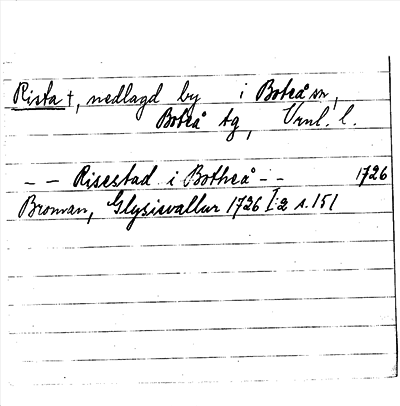 Rista †, nedlagd by i Boteå sn,
Boteå tg, Vrnl. l.
– – Risestad i Botheå – – 1726
Broman, Glysisvallur 1726 I:2 s. 151